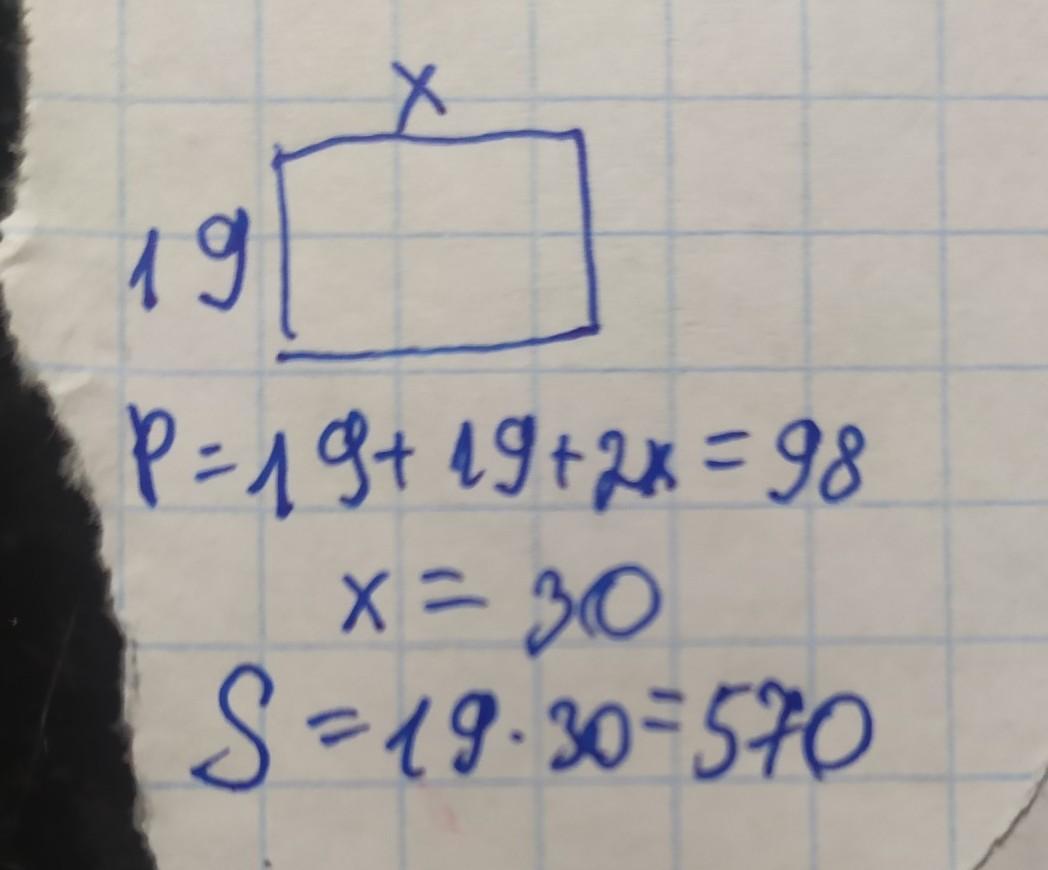 x
19
P=19+19+2x=98
x=30
S=19·30=570